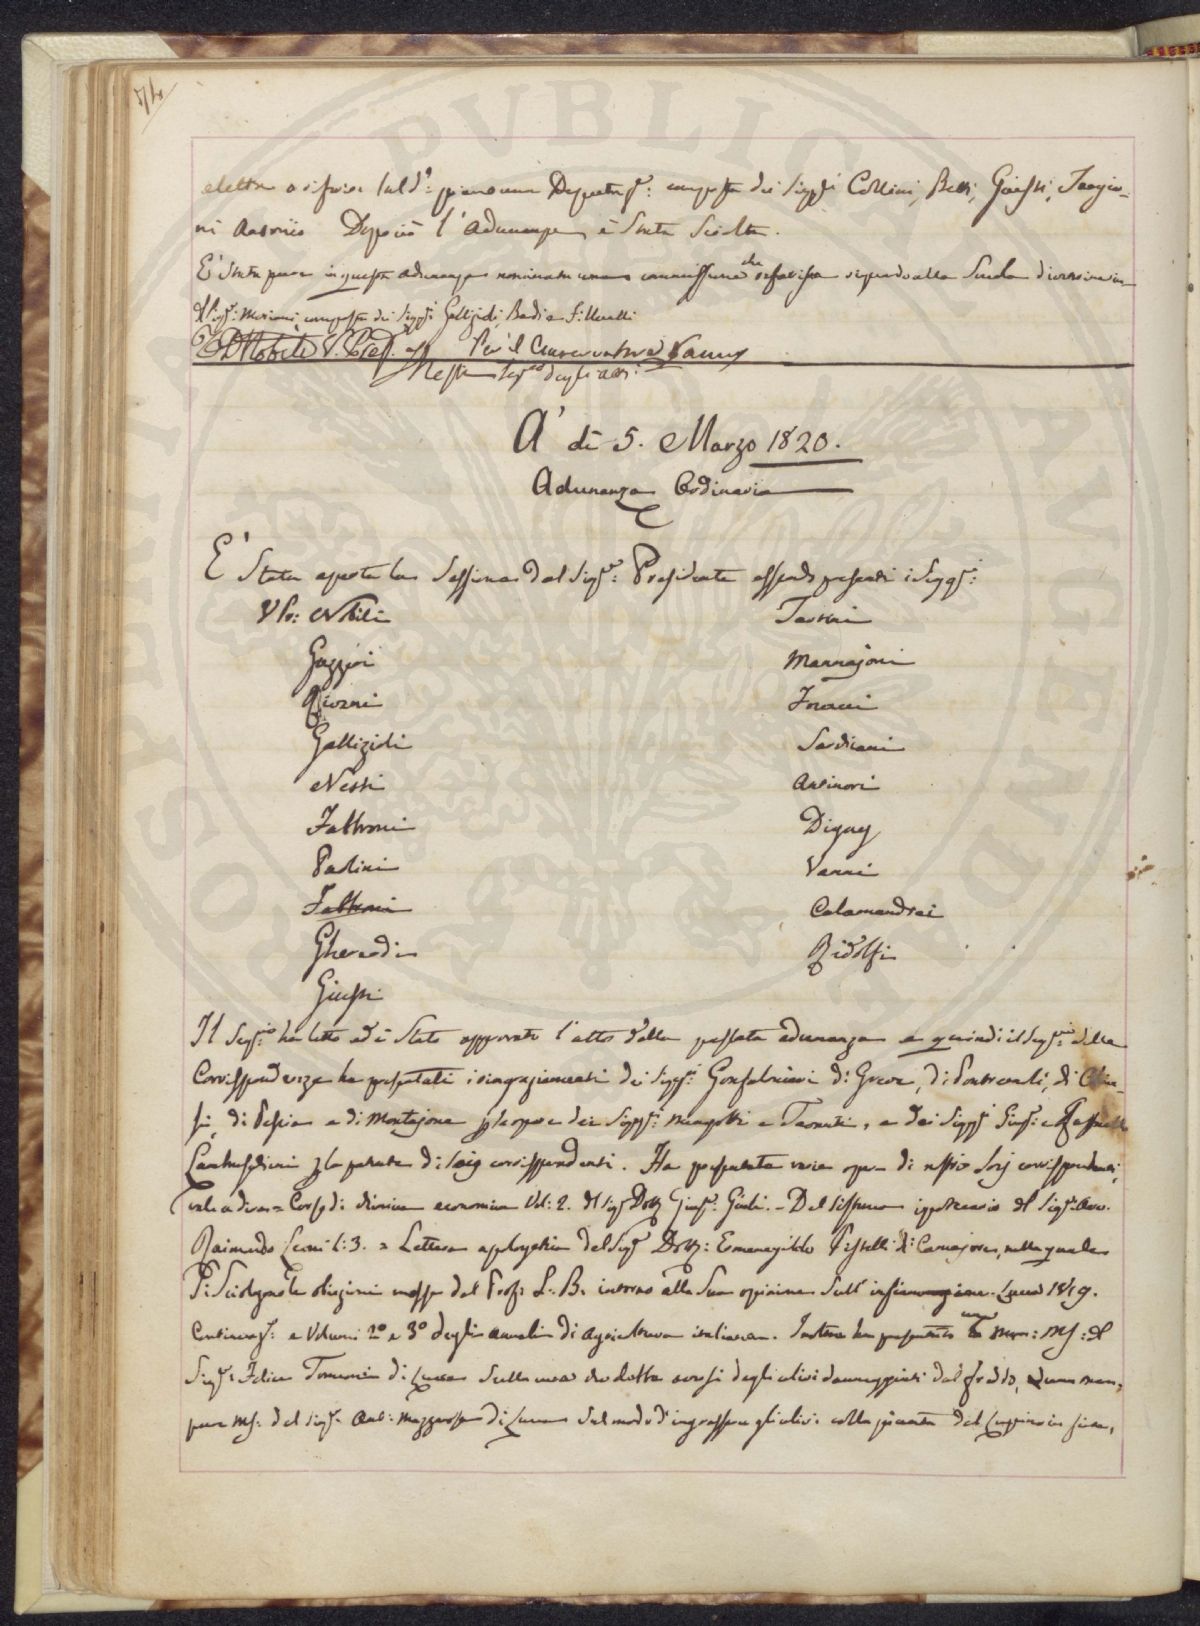 74
eletta a riferire sul dº: piano una Deputne: composta dei Siggri Collini, Betti, Giusti, Targio-
ni Antonio Dopo ciò l'Adunanza è Stata Sciolta.
E' Stata pure in questa adunanza nominata una commissione che referisca riguardo alla Scuola
del Sigr: Mariani, composta dei Siggri Gallizioli, Badia
Nobili V. Pres. Per il Conservatore Vanni
Nesti Segrio degli atti
A' dì 5. Marzo 1820.
Adunanza Ordinaria
E' Stata aperta la Sessione dal Sigr: Presidente essendo presenti i Siggri:
V Po: Nobili
Tartini
Gazzeri
Mannajoni
Pivorni
Gallizioli
Sardiani
Nesti
Antinori
Fabbroni
Digny
Paolini
Vanni
Fabbroni
Calamandrei
Gherardi
Ridolfi
Giusti
Il Segrio ha letto ed è Stato approvato l'atto della passata adunanza e quindi il Segrio della
Corrispondenza ha presentati i ringraziamenti dei Siggri Gonfalonieri di Greve, di Pontremoli, di
di Pescia e di Montajone dei Siggri: e Tramonti, e dei Siggri Giuse: e Raffaello
Lambruschini p la patente di Soci corrispondenti. Ha presentato varie opere di nostri Socj corrispondenti,
vale a dire = Corso di divina economia Vol: 2. del Sigr Dottr Giuse: Giuli. - Del Sistema ipotecario del Sigr: Avv.
Raimondo Leoni t: 3. = Lettera apologetica del Sigr Dottr: Ermenegildo Pistelli di Camajore, nella quale
Si Sciolgono le obiezioni mosse dal Profr L. B. intorno alla Sua opinione Sull' infiammazione. Lucca 1819.
e Volumi 2º e 3º degli annali di Agricoltura italiana. Inoltre ha presentato una mem: MS: del
Sigr: Felice Tommasi di Lucca Sulla cura da darsi degli olivi danneggiati dal freddo, Una mem,
pure MS: del Sigr. Ant: Mazzarosa di Lucca Sul modo d'ingrassare gli olivi colla pianta del Luppino in fiore,